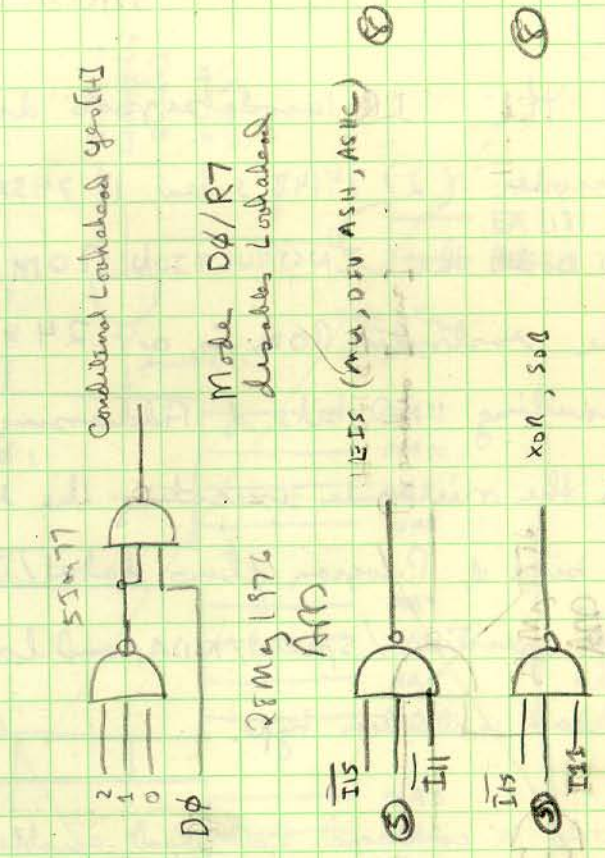 5 Jan 77
Conditional Lookahead yes[H]
2
1
0
DØ
Mode DØ/R7
disables Lookahead
28 May 1976
I̅1̅5̅
5
I̅1̅1̅
EIS (MUL, DIV ASH, ASHC)
8
I̅1̅5̅
5
I11
XOR, SOB
8